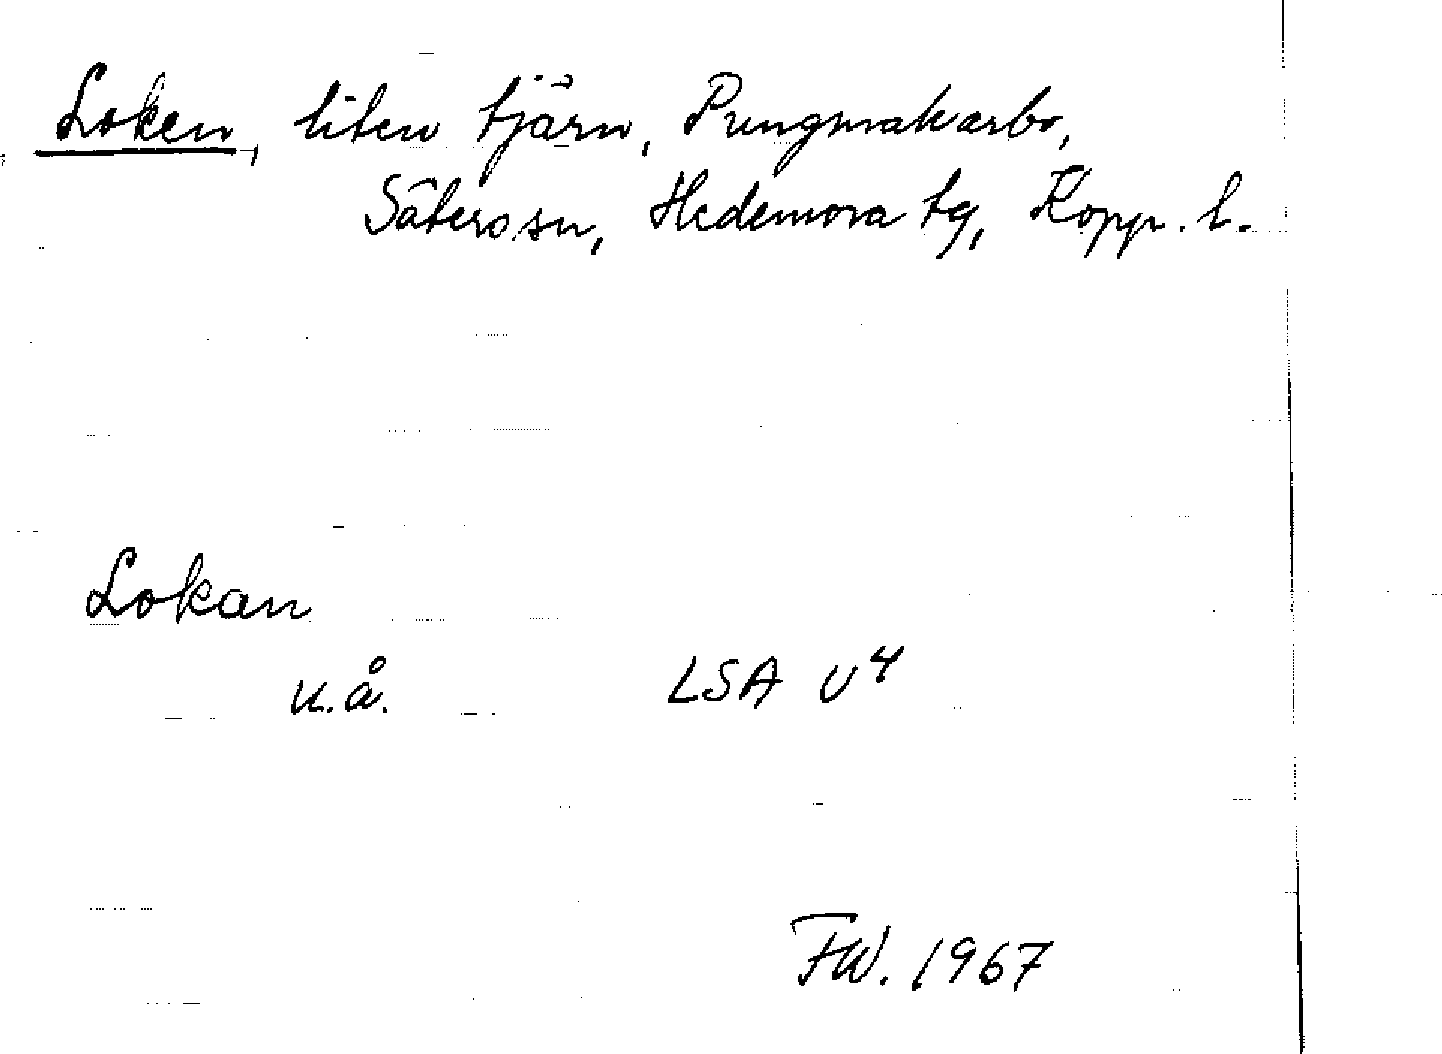 Loken, liten tjärn, Pungmakarbo,
Säters sn, Hedemora tg, Kopp. l.
Lokan
u.å. LSA U4
FW. 1967